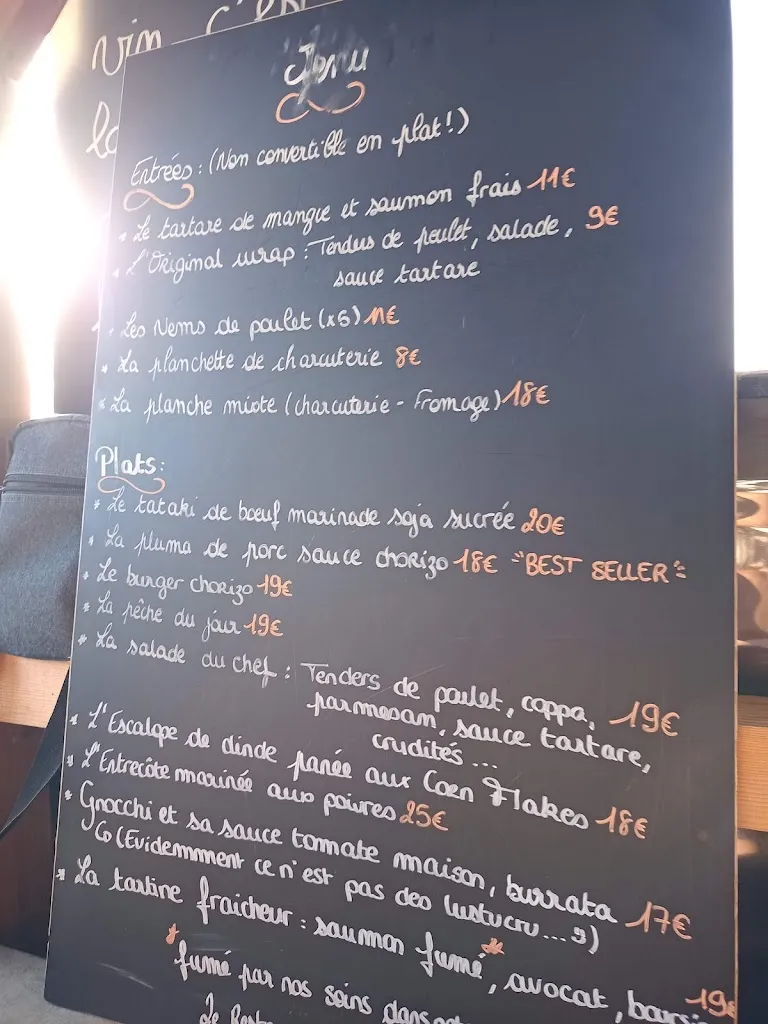 vin c'est
la
Menu
Entrées : (Non convertible en plat!)
* Le tartare de mangue et saumon frais 11€
* L'Original wrap : Tenders de poulet, salade, 9€
sauce tartare
* Les Nems de poulet (x6) 11€
* La planchette de charcuterie 8€
* La planche mixte (charcuterie - Fromage) 18€
Plats :
* Le tataki de bœuf marinade soja sucrée 20€
* La pluma de porc sauce chorizo 18€ "BEST SELLER"
* Le burger chorizo 19€
* La pêche du jour 19€
* La salade du chef : Tenders de poulet, coppa, 19€
parmesan, sauce tartare,
crudités ...
* L'Escalope de dinde panée aux Corn Flakes 18€
* L'Entrecôte marinée aux poivres 25€
* Gnocchi et sa sauce tomate maison, burrata 17€
(Evidemmment ce n'est pas des lustucru... ;))
* La tartine fraicheur : saumon fumé*, avocat, 19€
* fumé par nos soins dans
Le